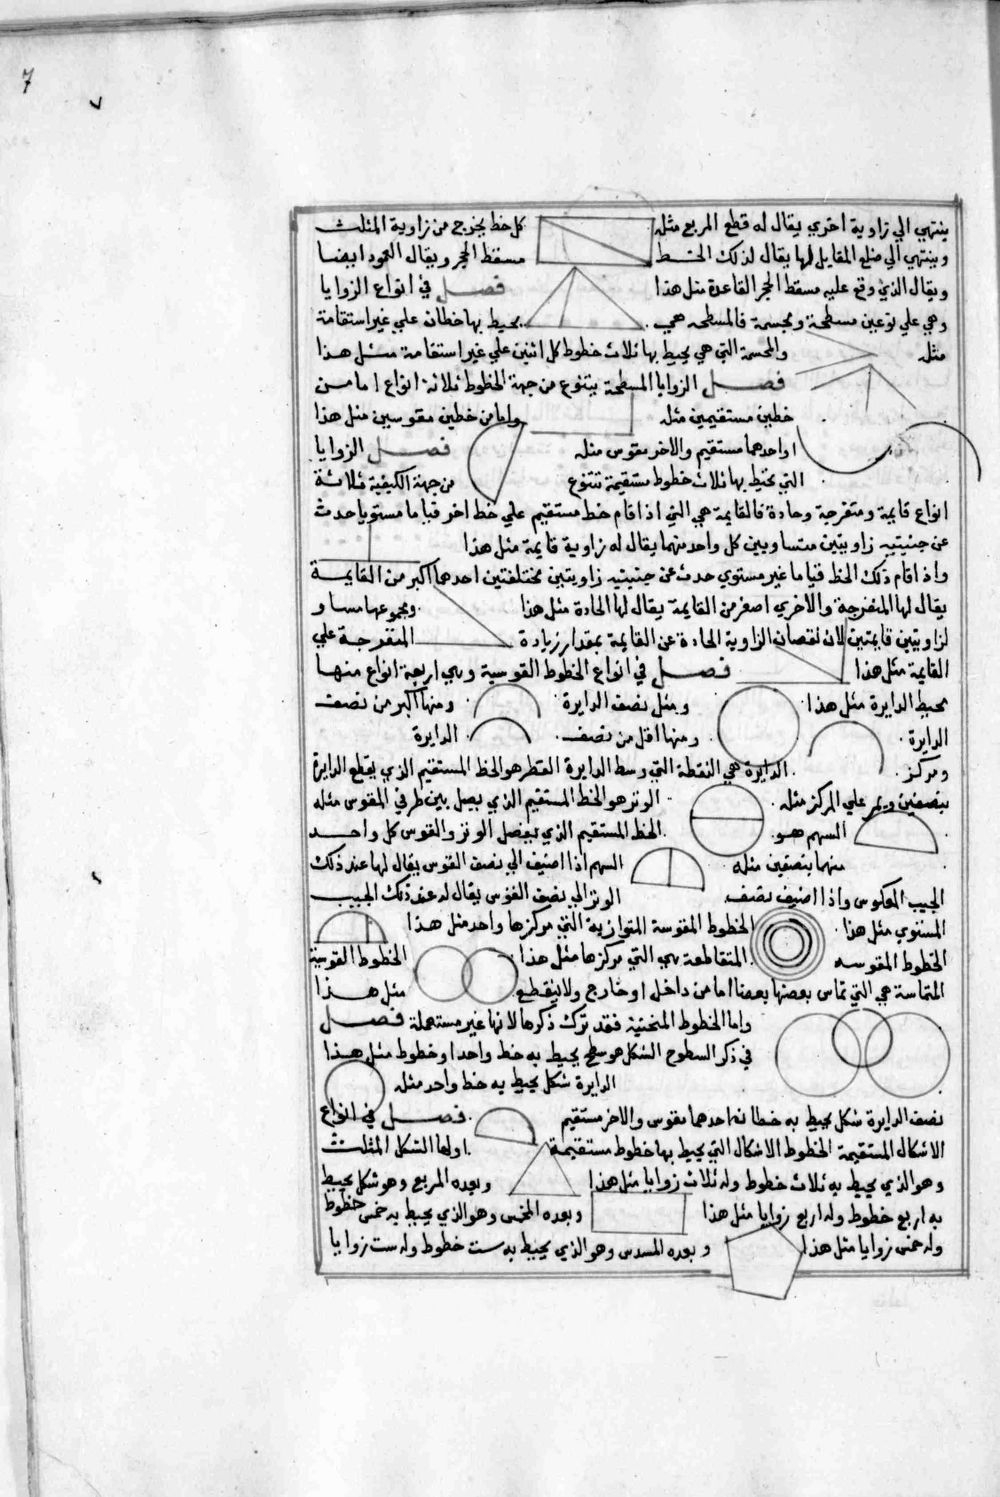 7
٧
ينتهي الي زاوية اخري يقال له قطع المربع مثله كل خط يخرج من زاوية المثلث
وينتهي الي ضلع المقابل لها يقال لذلك الخط مسقط الحجر ويقال العمود ايضا
ويقال الذي وقع عليه مسقط الحجر القاعدة مثل هذا فصل في انواع الزوايا
وهي علي نوعين مسطحة ومجسمة فالمسطحه هي يحيط بها خطان علي غير استقامة
مثله والمجسمة التي هي يحيط بها ثلاث خطوط كل اثنين علي غير استقامة مثل هذا
فصل الزوايا المسطحة يتنوع من جهة الخطوط ثلاثة انواع اما من
خطين مستقيمين مثله واما من خطين مقوسين مثل هذا
او احدهما مستقيم والاخر مقوس مثله فصل الزوايا
التي يحيط بها ثلاث خطوط مستقيمة تتنوع من جهة الكيفية ثلاثة
انواع قايمة ومنفرجة وحادة فالقايمة هي التي اذا قام خط مستقيم علي خط اخر قياما مستويا حدث
عن جنبتيه زاويتين متساويين كل واحد منهما يقال له زاوية قايمة مثل هذا
واذا قام ذلك الخط قياما غير مستوي حدث عن جنبتيه زاويتين مختلفتين احدهما اكبر من القايمة
يقال لها المنفرجة والاخري اصغر من القايمة يقال لها الحادة مثل هذا ومجموعهما مساو
لزاويتين قايمتين لان نقصان الزاوية الحادة عن القايمة بمقدار زيادة المنفرجة علي
القايمة مثل هذا فصل في انواع الخطوط القوسية وهي اربعة انواع منها
محيط الدايرة مثل هذا ومثل نصف الدايرة ومنها اكبر من نصف
الدايرة ومنها اقل من نصف الدايرة
ومركز الدايرة هي النقطة التي وسط الدايرة القطر هو الخط المستقيم الذي يقطع الدايرة
بنصفين ويمر علي المركز مثله الوتر هو الخط المستقيم الذي يصل بين طرفي المقوس مثله
السهم هو الخط المستقيم الذي يفصل الوتر والقوس كل واحد
منهما بنصفين مثله السهم اذا اضيف الي نصف القوس يقال لها عند ذلك
الجيب المعكوس واذا اضيف نصف الوتر الي نصف القوس يقال له عند ذلك الجيب
المستوي مثل هذا الخطوط المقوسة المتوازية التي مركزها واحد مثل هذا
الخطوط المقوسه المتقاطعة هي التي مركزها مثل هذا الخطوط القوسية
المتماسة هي التي تماس بعضها بعضا اما من داخل او خارج ولا ينقطع مثل هذا
واما الخطوط المنحنية فقد ترك ذكرها لانها غير مستعملة فصل
في ذكر السطوح الشكل هو سطح يحيط به خط واحد او خطوط مثل هذا
الدايرة شكل يحيط به خط واحد مثله
نصف الدايرة شكل يحيط به خطان احدهما مقوس والاخر مستقيم فصل في انواع
الاشكال المستقيمة الخطوط الاشكال التي يحيط بها خطوط مستقيمة اولها الشكل المثلث
وهو الذي يحيط به ثلاث خطوط وله ثلاث زوايا مثل هذا وبعده المربع وهو شكل يحيط
به اربع خطوط وله اربع زوايا مثل هذا وبعده المخمس وهو الذي يحيط به خمس خطوط
وله خمس زوايا مثل هذا وبعده المسدس وهو الذي يحيط به ست خطوط وله ست زوايا